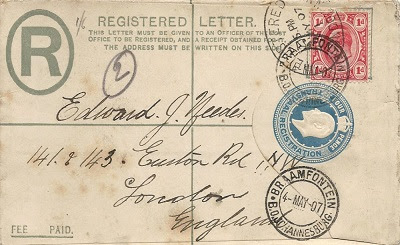 REGISTERED LETTER.
THIS LETTER MUST BE GIVEN TO AN OFFICER OF THE POST
OFFICE TO BE REGISTERED, AND A RECEIPT OBTAINED FOR IT.
THE ADDRESS MUST BE WRITTEN ON THIS SIDE.
R
2
BRAAMFONTEIN
Edward J. Needes.
REGISTRATION
FOUR PENCE
141 & 143 Euston Rd., N.W.
London
England
BRAAMFONTEIN
4-MAY-07
B.O. JOHANNESBURG
FEE PAID.